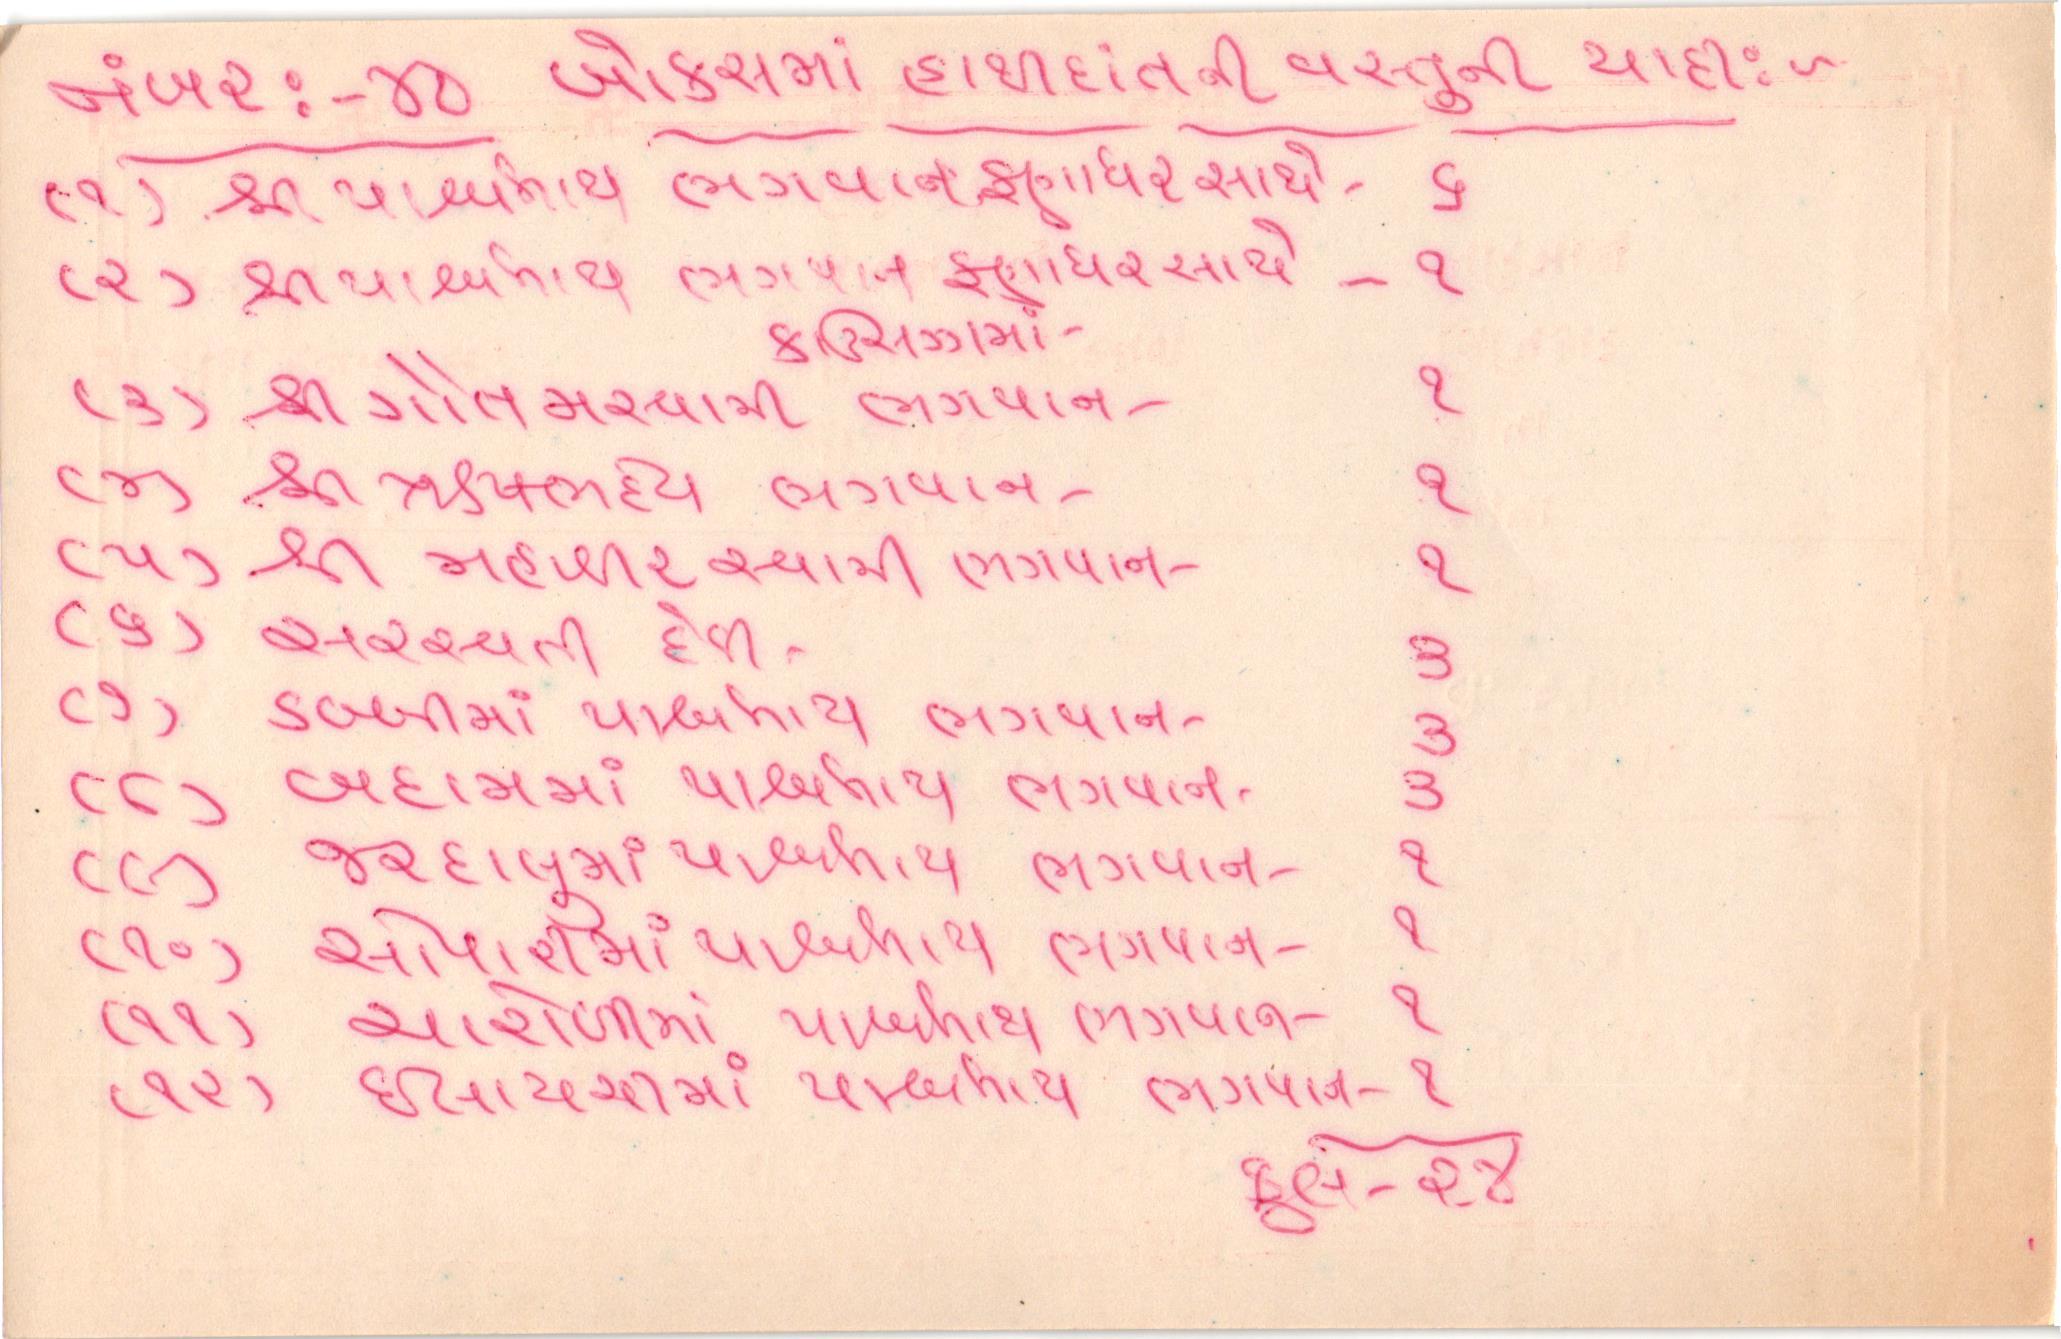 નંબરઃ-૪૪ બોકસમાં હાથીદાંતની વસ્તુની યાદીઃ-
(૧) શ્રી પાર્શ્વનાથ ભગવાન ફણાધર સાથે - ૬
(૨) શ્રી પાર્શ્વનાથ ભગવાન ફણાધર સાથે - ૧
કાઉસગ્ગમાં-
(૩) શ્રી ગૌતમસ્વામી ભગવાન- ૧
(૪) શ્રી ઋષભદેવ ભગવાન- ૧
(૫) શ્રી મહાવીર સ્વામી ભગવાન- ૧
(૬) સરસ્વતી દેવી- ૩
(૭) ડબ્બીમાં પાર્શ્વનાથ ભગવાન- ૩
(૮) બદામમાં પાર્શ્વનાથ ભગવાન- ૩
(૯) જરદાલુમાં પાર્શ્વનાથ ભગવાન- ૧
(૧૦) સોપારીમાં પાર્શ્વનાથ ભગવાન- ૧
(૧૧) ચારોળીમાં પાર્શ્વનાથ ભગવાન- ૧
(૧૨) ઈલાયચીમાં પાર્શ્વનાથ ભગવાન- ૧
કુલ- ૨૪